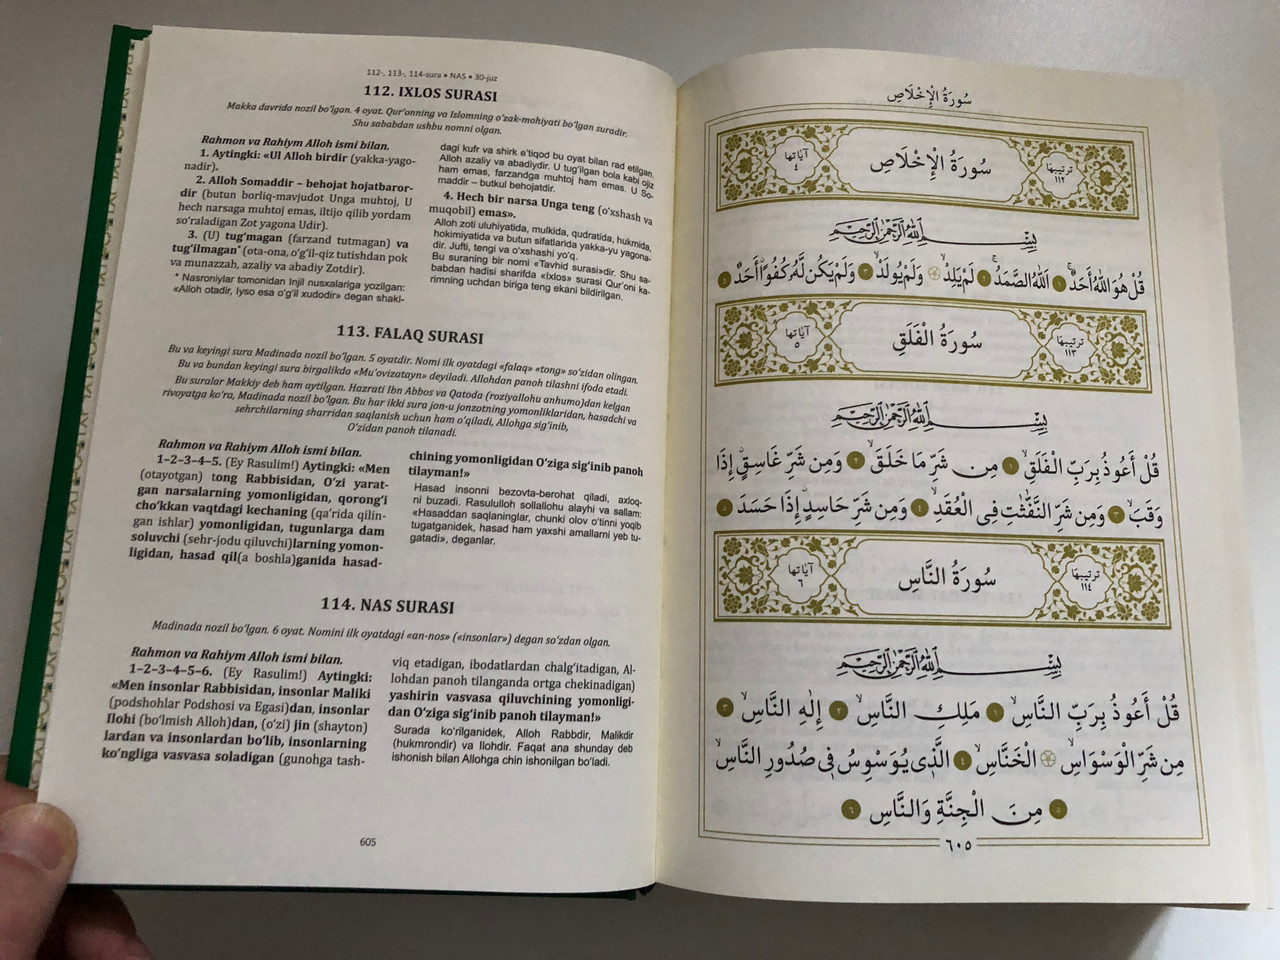 112-, 113-, 114-sura • NAS • 30-juz
112. IXLOS SURASI
Makka davrida nozil bo‘lgan. 4 oyat. Qur’onning va Islomning o‘zak-mohiyati bo‘lgan suradir.
Shu sababdan ushbu nomni olgan.
Rahmon va Rahiym Alloh ismi bilan.
1. Aytingki: «Ul Alloh birdir (yakka-yago-
nadir).
2. Alloh Somaddir – behojat hojatbaror-
dir (butun borliq-mavjudot Unga muhtoj, U
hech narsaga muhtoj emas, iltijo qilib yordam
so‘raladigan Zot yagona Udir).
3. (U) tug‘magan (farzand tutmagan) va
tug‘ilmagan* (ota-ona, o‘g‘il-qiz tutishdan pok
va munazzah, azaliy va abadiy Zotdir).
* Nasroniylar tomonidan Injil nusxalariga yozilgan:
«Alloh otadir, Iyso esa o‘g‘il xudodir» degan shakl-
dagi kufr va shirk e’tiqod bu oyat bilan rad etilgan.
Alloh azaliy va abadiydir. U tug‘ilgan bola kabi ojiz
ham emas, farzandga muhtoj ham emas. U So-
maddir – butkul behojatdir.
4. Hech bir narsa Unga teng (o‘xshash va
muqobil) emas».
Alloh zoti uluhiyatida, mulkida, qudratida, hukmida,
hokimiyatida va butun sifatlarida yakka-yu yagona-
dir. Jufti, tengi va o‘xshashi yo‘q.
Bu suraning bir nomi «Tavhid surasi»dir. Shu sa-
babdan hadisi sharifda «Ixlos» surasi Qur’oni ka-
rimning uchdan biriga teng ekani bildirilgan.
113. FALAQ SURASI
Bu va keyingi sura Madinada nozil bo‘lgan. 5 oyatdir. Nomi ilk oyatdagi «falaq» «tong» so‘zidan olingan.
Bu va bundan keyingi sura birgalikda «Mu’ovizatayn» deyiladi. Allohdan panoh tilashni ifoda etadi.
Bu suralar Makkiy deb ham aytilgan. Hazrati Ibn Abbos va Qatoda (roziyallohu anhumo)dan kelgan
rivoyatga ko‘ra, Madinada nozil bo‘lgan. Bu har ikki sura jon-u jonzotning yomonliklaridan, hasadchi va
sehrchilarning sharridan saqlanish uchun ham o‘qiladi, Allohga sig‘inib,
O‘zidan panoh tilanadi.
Rahmon va Rahiym Alloh ismi bilan.
1–2–3–4–5. (Ey Rasulim!) Aytingki: «Men
(otayotgan) tong Rabbisidan, O‘zi yarat-
gan narsalarning yomonligidan, qorong‘i
cho‘kkan vaqtdagi kechaning (qa’rida qilin-
gan ishlar) yomonligidan, tugunlarga dam
soluvchi (sehr-jodu qiluvchi)larning yomon-
ligidan, hasad qil(a boshla)ganida hasad-
chining yomonligidan O‘ziga sig‘inib panoh
tilayman!»
Hasad insonni bezovta-berohat qiladi, axloq-
ni buzadi. Rasululloh sollallohu alayhi va sallam:
«Hasaddan saqlaninglar, chunki olov o‘tinni yoqib
tugatganidek, hasad ham yaxshi amallarni yeb tu-
gatadi», deganlar.
114. NAS SURASI
Madinada nozil bo‘lgan. 6 oyat. Nomini ilk oyatdagi «an-nos» («insonlar») degan so‘zdan olgan.
Rahmon va Rahiym Alloh ismi bilan.
1–2–3–4–5–6. (Ey Rasulim!) Aytingki:
«Men insonlar Rabbisidan, insonlar Maliki
(podshohlar Podshosi va Egasi)dan, insonlar
Ilohi (bo‘lmish Alloh)dan, (o‘zi) jin (shayton)
lardan va insonlardan bo‘lib, insonlarning
ko‘ngliga vasvasa soladigan (gunohga tash-
viq etadigan, ibodatlardan chalg‘itadigan, Al-
lohdan panoh tilanganda ortga chekinadigan)
yashirin vasvasa qiluvchining yomonligi-
dan O‘ziga sig‘inib panoh tilayman!»
Surada ko‘rilganidek, Alloh Rabbdir, Malikdir
(hukmrondir) va Ilohdir. Faqat ana shunday deb
ishonish bilan Allohga chin ishonilgan bo‘ladi.
605
سُورَةُ الْإِخْلَاصِ
ترتيبها ١١٢ سُورَةُ الْإِخْلَاصِ آياتها ٤
بِسْمِ اللّٰهِ الرَّحْمٰنِ الرَّحِيمِ
قُلْ هُوَ اللّٰهُ أَحَدٌ ۚ ١ اَللّٰهُ الصَّمَدُ ۚ ٢ لَمْ يَلِدْ ۙ وَلَمْ يُولَدْ ۙ ٣ وَلَمْ يَكُن لَّهُ كُفُوًا أَحَدٌ ٤
ترتيبها ١١٣ سُورَةُ الْفَلَقِ آياتها ٥
بِسْمِ اللّٰهِ الرَّحْمٰنِ الرَّحِيمِ
قُلْ أَعُوذُ بِرَبِّ الْفَلَقِ ۙ ١ مِن شَرِّ مَا خَلَقَ ۙ ٢ وَمِن شَرِّ غَاسِقٍ إِذَا
وَقَبَ ۙ ٣ وَمِن شَرِّ النَّفّٰثٰتِ فِى الْعُقَدِ ۙ ٤ وَمِن شَرِّ حَاسِدٍ إِذَا حَسَدَ ٥
ترتيبها ١١٤ سُورَةُ النَّاسِ آياتها ٦
بِسْمِ اللّٰهِ الرَّحْمٰنِ الرَّحِيمِ
قُلْ أَعُوذُ بِرَبِّ النَّاسِ ۙ ١ مَلِكِ النَّاسِ ۙ ٢ إِلٰهِ النَّاسِ ۙ ٣
مِن شَرِّ الْوَسْوَاسِ ۙ الْخَنَّاسِ ۙ ٤ الَّذِى يُوَسْوِسُ فِى صُدُورِ النَّاسِ ۙ
٥ مِنَ الْجِنَّةِ وَالنَّاسِ ٦
٦٠٥